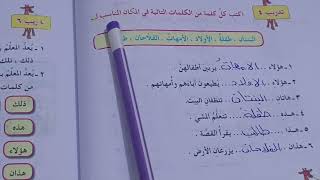 تدريب ٥
اكتب كل كلمة من الكلمات التالية في المكان المناسب
البنتان . طفلة . الأولاد . الأمهات . الفلاحان .
١- هؤلاء الأمهات يربين أطفالهن
٢- هؤلاء الأولاد يطيعون آباءهم وأمهاتهم .
٣- هاتان البنتان تنظفان البيت .
٤- هذه طفلة تتعلم المشي .
٥- هذا طالب يقرأ القصة .
٦- هذان الفلاحان يزرعان الأرض .
تدريب ٦
١- يعد المعلم
٢- يعد المعلم
من كلمات
ذلك
هذه
هؤلاء
هذا